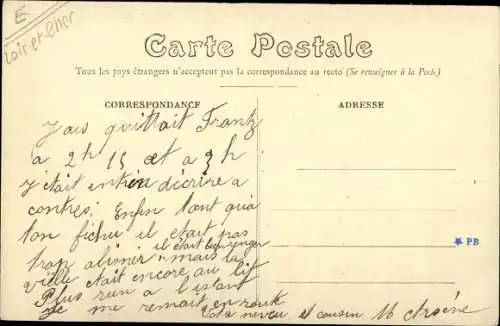 E
Loir-et-Cher
Carte Postale
Tous les pays étrangers n'acceptent pas la correspondance au recto (Se renseigner à la Poste)
CORRESPONDANCE
ADRESSE
quittait Frantz
a 2h 15 et a 3h
j'etait entrin décrire a
contres. Enfin tant qua
ton fichu il etait pas
trop abimer mais la
il était bien ranger
vielle etait encore au lit
Plus rien a l'instant
Je me remait en route
Votre neveu et cousin M Arsène
PB